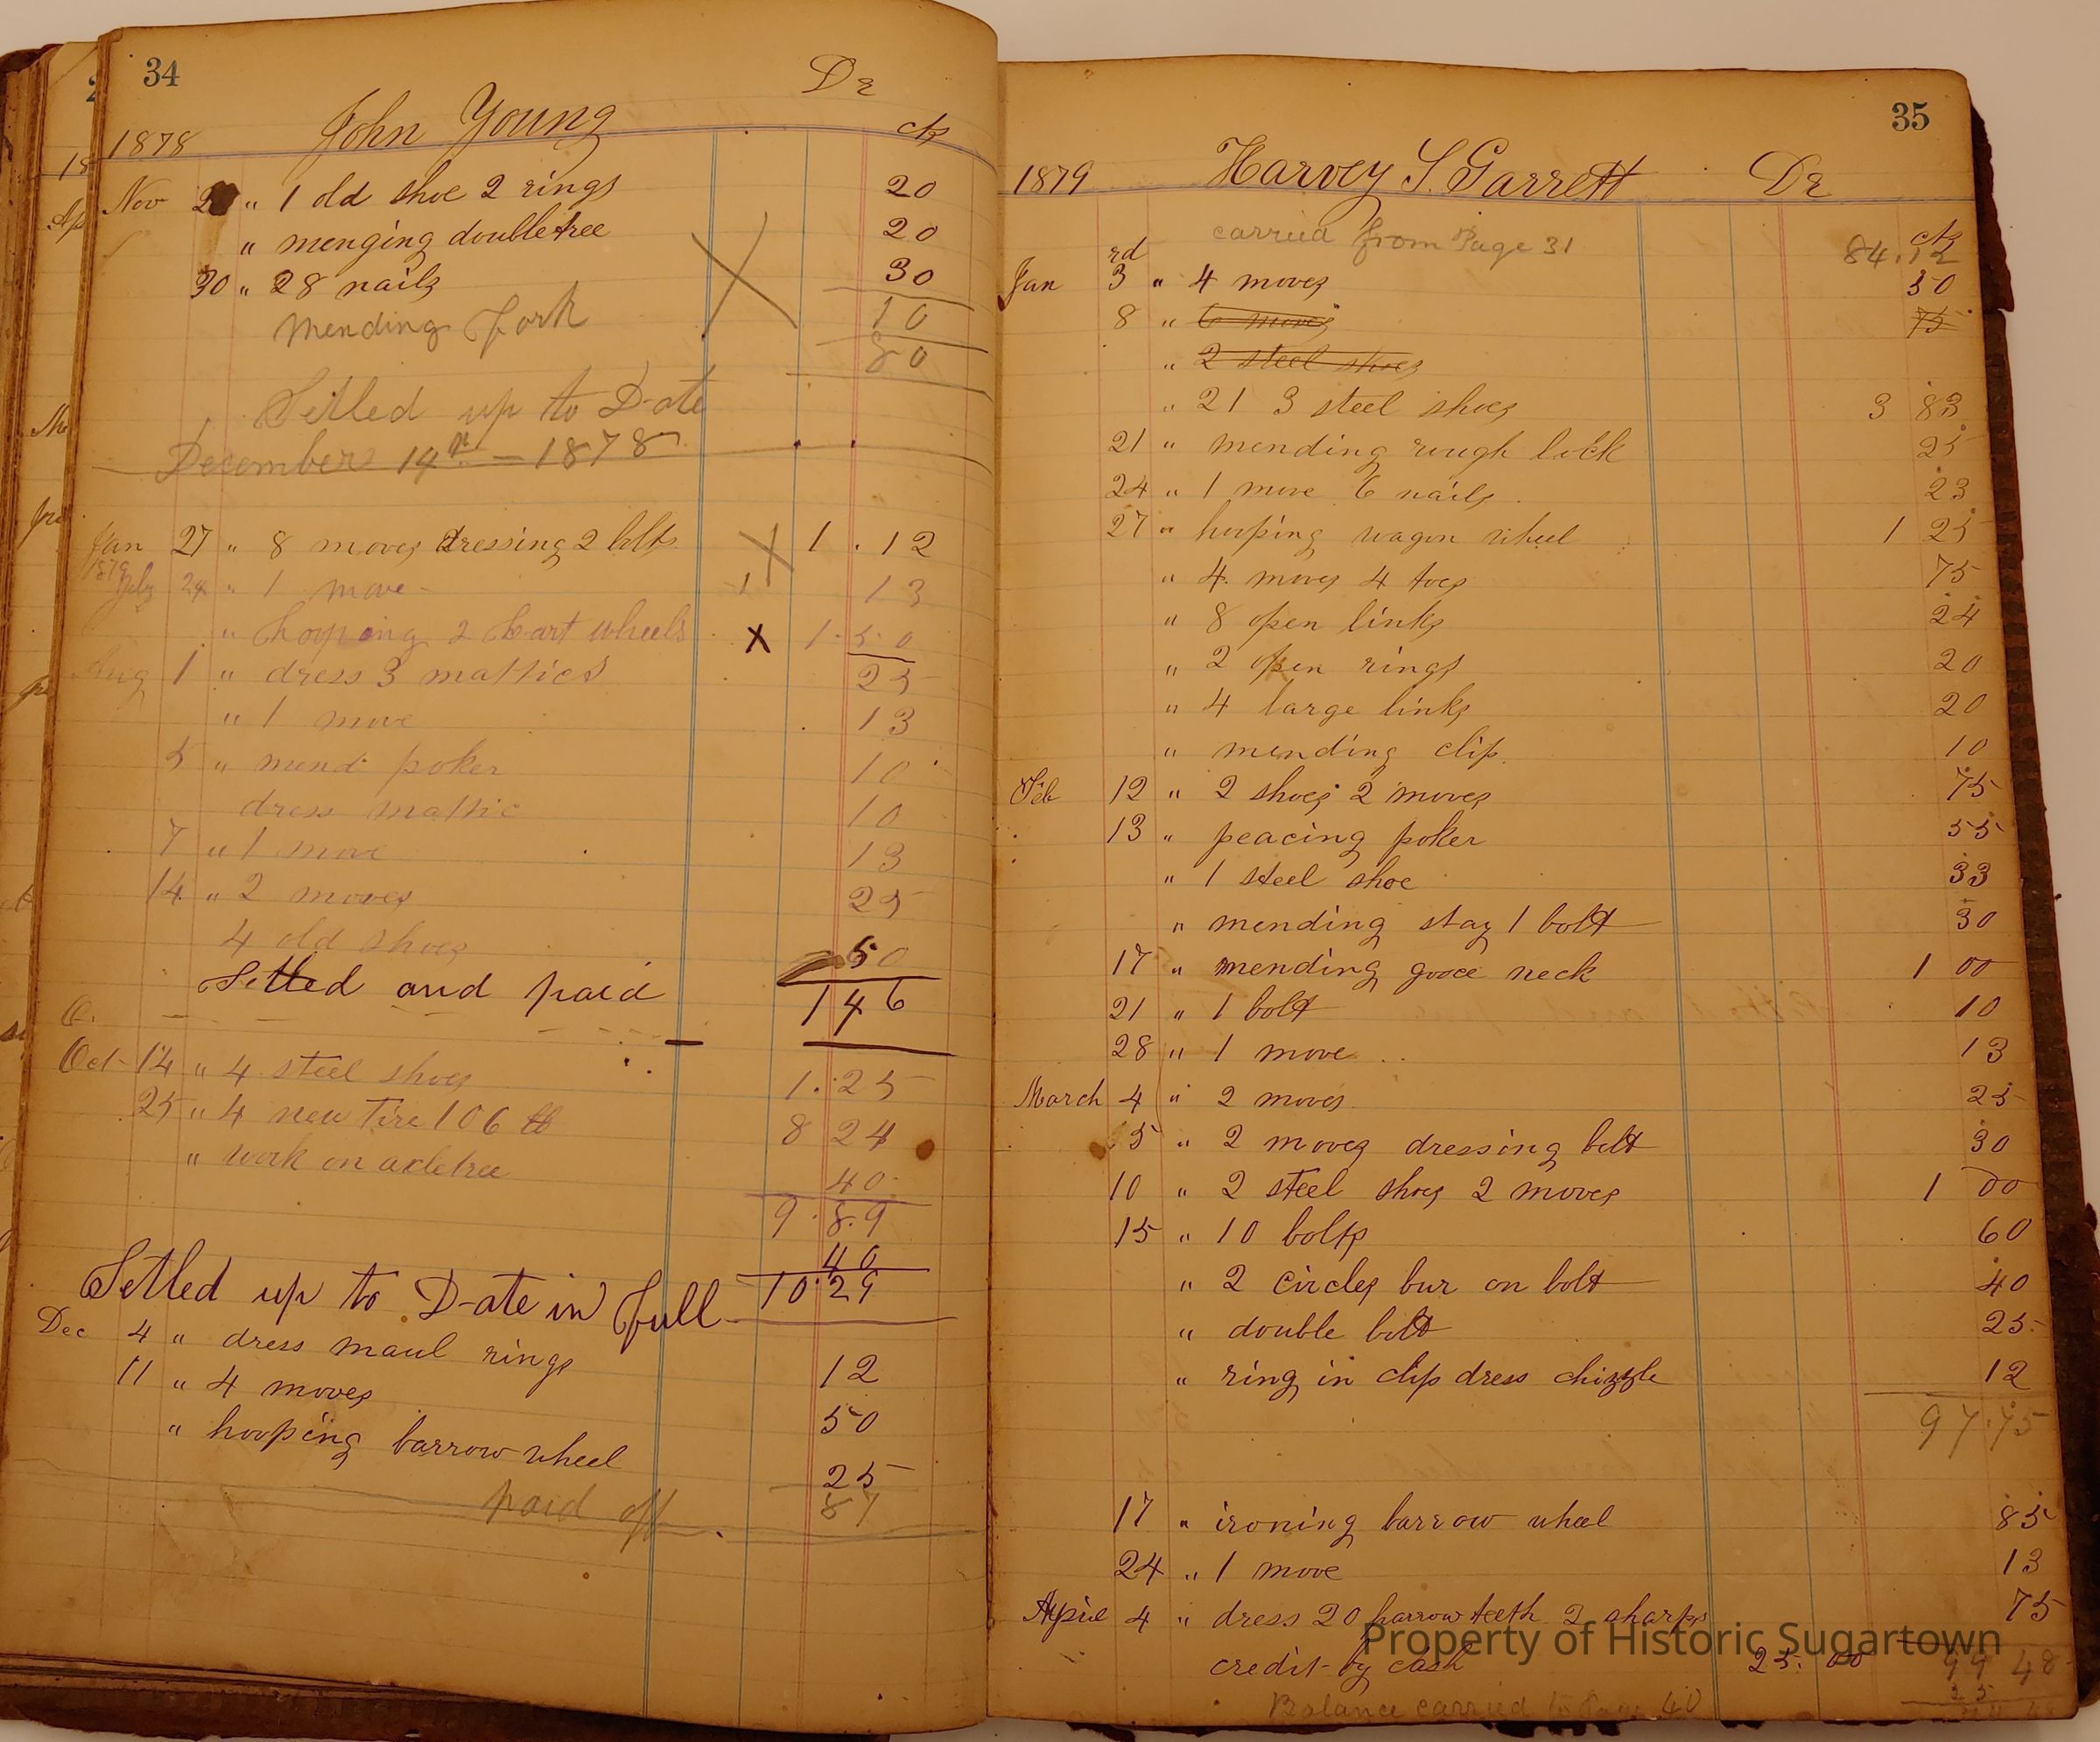 34
John Young Dr
1878 cts
Nov 2 " 1 old shoe 2 rings 20
" menging doubletree 20
30 " 28 nails 30
Mending fork 10
80
Setled up to Date
December 14th - 1878
Jan 27 " 8 moves dressing 2 bolts 1.12
1879
July 24 " 1 move 13
" hooping 2 Cart wheels x 1.50
Aug 1 " dress 3 mattics 25
" 1 move 13
5 " mend poker 10
dress mattic 10
7 " 1 move 13
14 " 2 moves 25
4 old shoes 50
Setled and paid 146
O.
Oct 14 " 4 steel shoes 1.25
25 " 4 new Tire 106 lb 8 24
" work on axletree 40
9.8.9
40
Setled up to Date in full 10.29
Dec 4 " dress maul rings 12
11 " 4 moves 50
" hooping barrow wheel 25
paid off 87
35
1879 Harvey S. Garrett Dr
carried from Page 31 cts
84.12
Jan 3rd " 4 moves 50
8 " 6 moves 75
" 2 steel shoes
" 21 3 steel shoes 3 83
21 " mending rough lock 25
24 " 1 move 6 nails 23
27 " hooping wagon wheel 1 25
" 4 moves 4 toes 75
" 8 open links 24
" 2 open rings 20
" 4 large links 20
" mending clip 10
Feb 12 " 2 shoes 2 moves 75
13 " peacing poker 55
" 1 steel shoe 33
" mending stay 1 bolt 30
17 " mending gooce neck 1 00
21 " 1 bolt 10
28 " 1 move 13
March 4 " 2 moves 25
5 " 2 moves dressing bolt 30
10 " 2 steel shoes 2 moves 1 00
15 " 10 bolts 60
" 2 circles bur on bolt 40
" double bolt 25
" ring in clip dress chizzle 12
97.75
17 " ironing barrow wheel 85
24 " 1 move 13
April 4 " dress 20 harrow teeth 2 sharps 75
Property of Historic Sugartown
credit by cash 25.00 99 48
25
Balance carried to Page 40